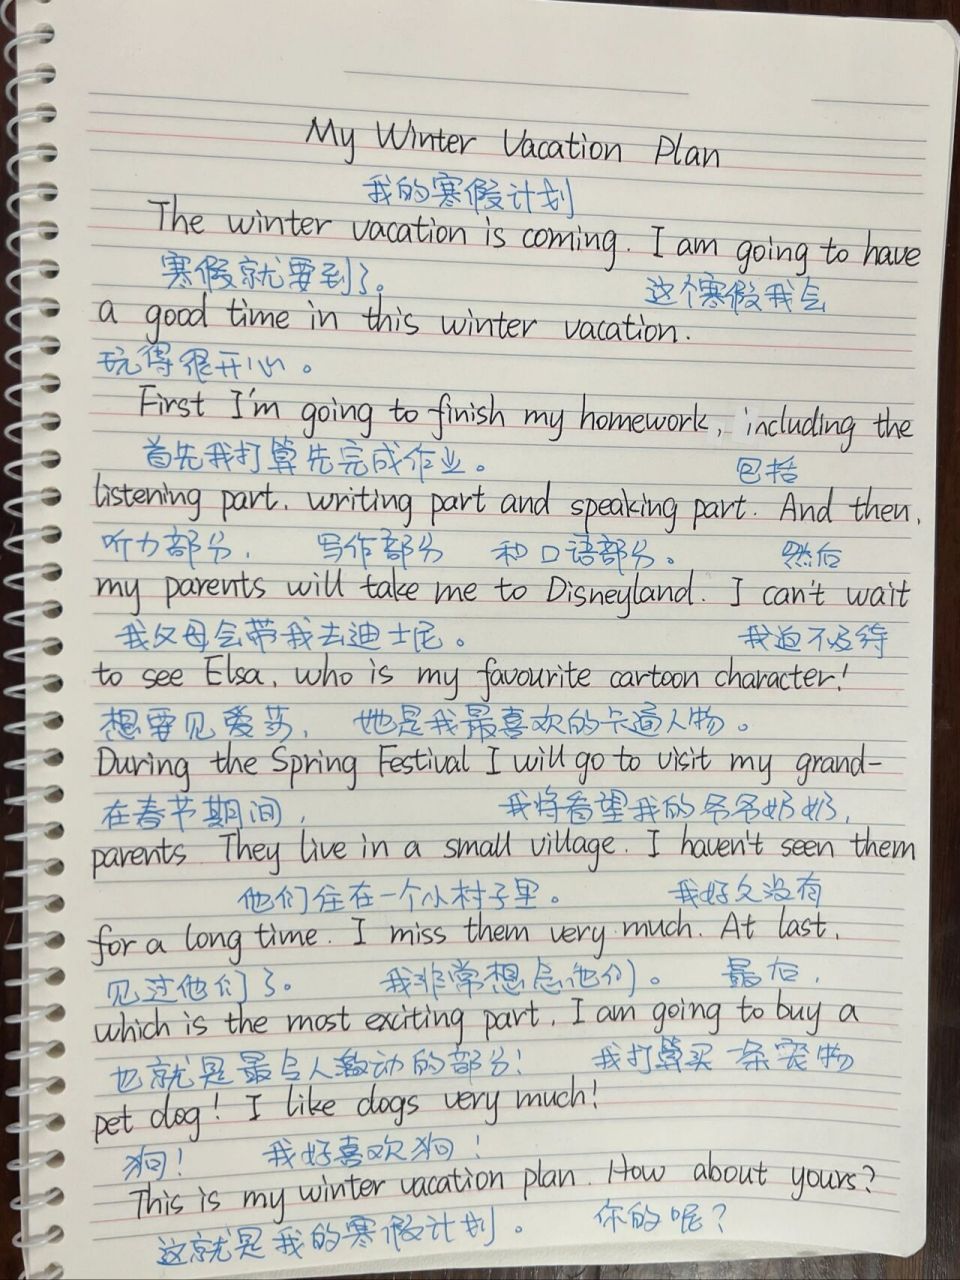 My Winter Vacation Plan
我的寒假计划
The winter vacation is coming. I am going to have
寒假就要到了。 这个寒假我会
a good time in this winter vacation.
玩得很开心。
First I'm going to finish my homework, including the
首先我打算先完成作业。 包括
listening part, writing part and speaking part. And then,
听力部分, 写作部分 和口语部分。 然后
my parents will take me to Disneyland. I can't wait
我父母会带我去迪士尼。 我迫不及待
to see Elsa, who is my favourite cartoon character!
想要见爱莎, 她是我最喜欢的卡通人物。
During the Spring Festival I will go to visit my grand-
在春节期间, 我将看望我的爷爷奶奶,
parents. They live in a small village. I haven't seen them
他们住在一个小村子里。 我好久没有
for a long time. I miss them very much. At last,
见过他们了。 我非常想念他们。 最后,
which is the most exciting part, I am going to buy a
也就是最令人激动的部分! 我打算买一条宠物
pet dog! I like dogs very much!
狗! 我好喜欢狗!
This is my winter vacation plan. How about yours?
这就是我的寒假计划。 你的呢?